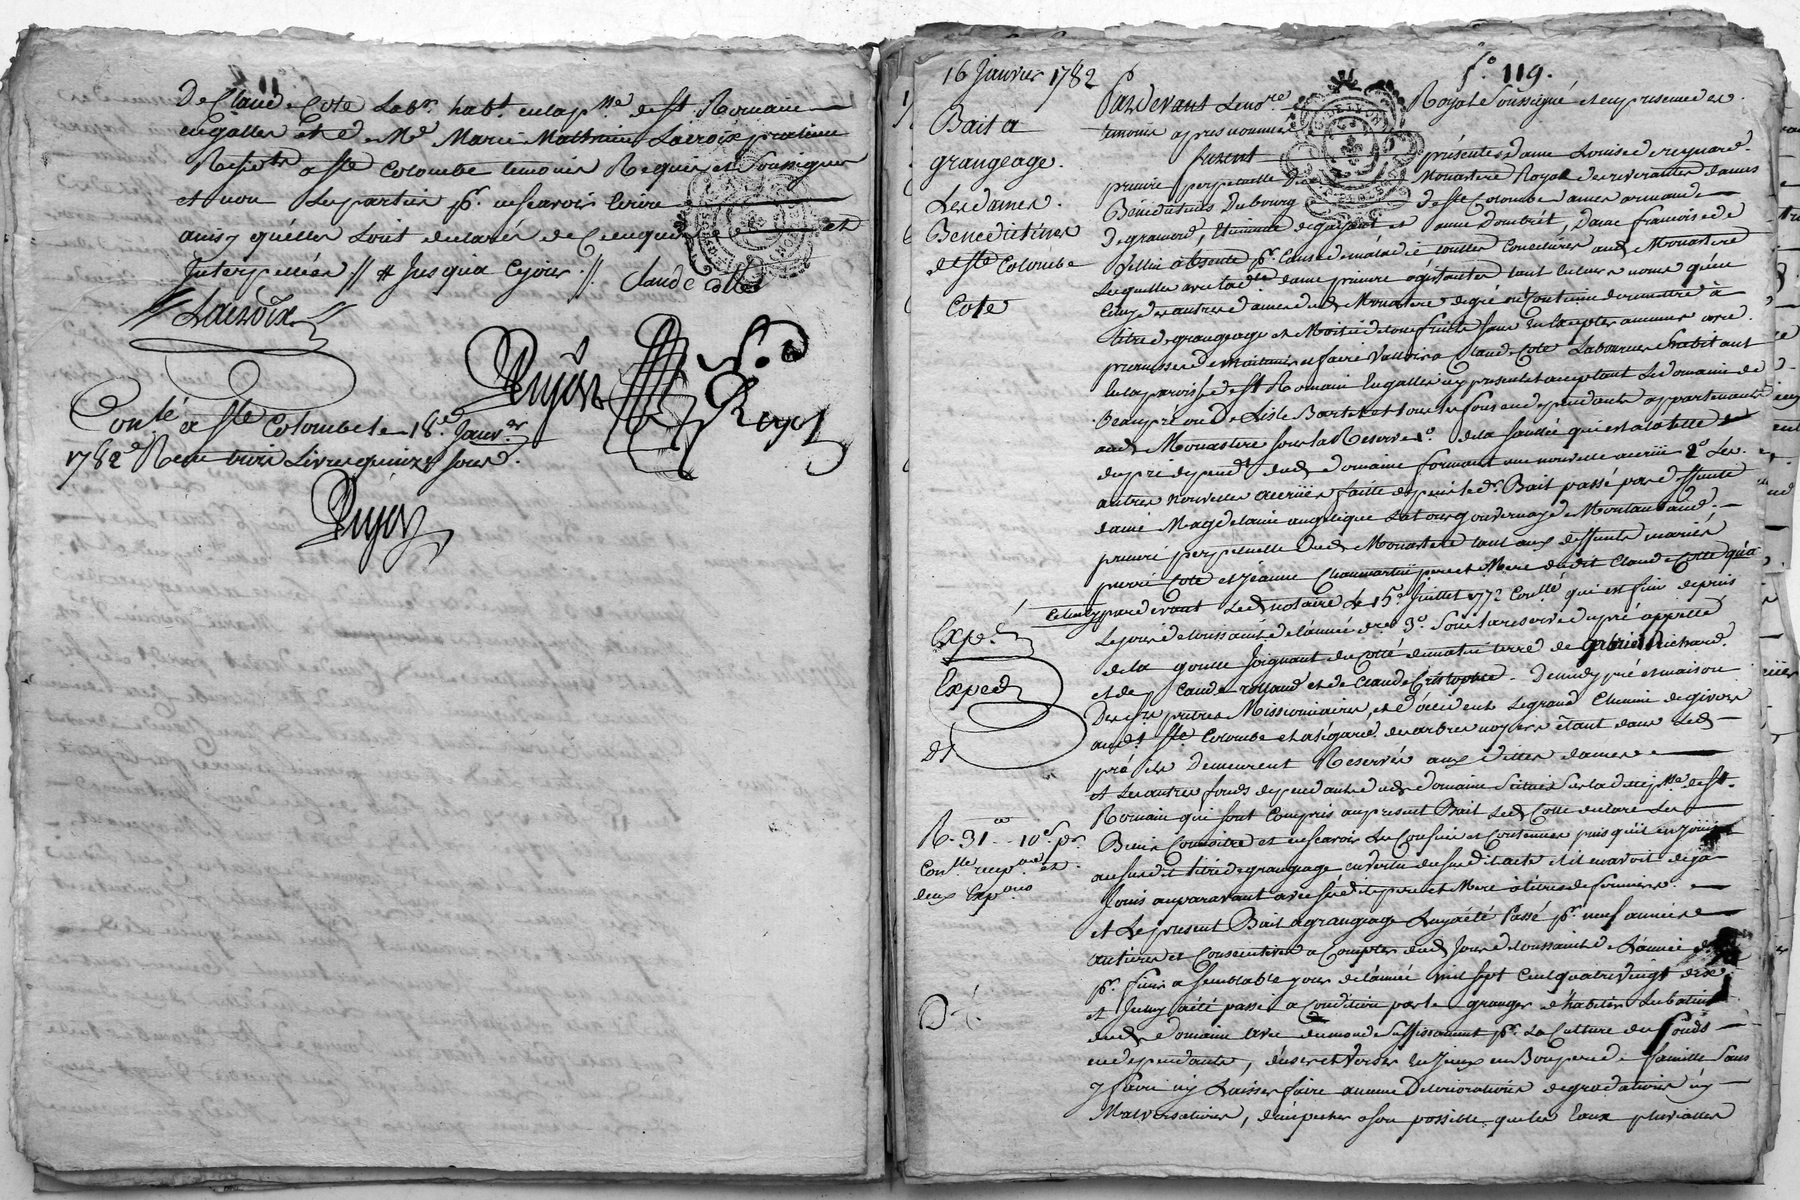 De Claude Cote Labr. habt. en la psse de St. Romain
en gallet et de Me Marie Mathieu Lacroix praticien
Residt a Ste Colombe temoins Requis et soussignes
et non les parties pr. ne scavoir écrire
ainsy quelles l'ont declarés de ce enquis et
Interpellées // # Jusqu'a ce jour. // Claude Cotte
Lacroix
Pujon
Conlé a Ste Colombe le 18e Janver
1782 Recu trois Livres quinze sous.
Pujon
fo. 119.
16 Janvier 1782
Bail a
grangeage.
Les dames
Benedictines
de Ste Colombe
Cote
Expé.
Expedé
R. 31 - 10s. pr.
Conlle recepon. et
deux Expons
Pardevant le nore Royal Soussigné et en presence des
temoins apres nommés
furent présentes dame Louise de reynard
prieure perpetuelle du Monastere Royal des reverandes dames
Bénédictines du bourg de Ste Colombe, dames armande
de gramond, Etiennette de et anne Doubtet, Dame francoise de
absente pr. Cause de maladie toutes Conseilleres aud. Monastere
Lesquelles avec lade. dame prieure agissantes tant en leurs noms qu'en
ceux des autres dames dud. Monastere de gré ont souvenu de remettre à
titre de grangeage et Moitié de tous fruits sans en excepter aucuns avec
promesse de maintenir et faire valloir a Claude Cote Laboureur habitant
en la paroisse de St Romain En gallet icy present et acceptant Le Domaine de
Beaupré ou de L'isle Barlet et tous les fonds en dependants appartenants
aud. Monastere sous la Reserve 1o. de la saulée qui est a la tette
du pré dependt. dud. Domaine formant une nouvelle accrüe 2o Les
autres nouvelles accrües faitte depuis le dr. Bail passé par deffunte
dame Magdelaine angelique La tour gouvernay de Montauband.
prieure perpetuelle dud. Monastere tant aux deffunts mariés
pierre Cote et Jeanne Chaumartin pere et Mere dudit Claude Cotte qu'a
celuy cy pardevant Led. notaire le 15e. Juillet 1772 Conllé qui est fini depuis
le jour de toussaint de l'année dere 3o. Sous la reserve du pré appellé
de la goulle Joignant du Cotté du matin terre de gabriel Richard.
et de Claude rolland et de Claude Cristophle. Demidy pré et maison
Des srs prètres Missionnaires, et d'occident Le grand Chemin de givors
audt. Ste Colombe et a l'égard des arbres noyers étant dans Led.
pré ils demeurent Reservés aux dittes dames
et Les autres fonds dependants dud. Domaine Situés Sur la ditte psse de St.
Romain qui sont Compris au present Bail Led. Cotte declare Les
Bien Connoitre et en scavoir Les Confins et Contenues puis qu'il en joüissoit
au susdit titre de grangeage en vertu du susdit acte et il en avoit deja
Joüis auparavant avec ses dits pere et Mere a titre de fermier.
et Le present Bail a grangeage Luy a été Passé pr. neuf années
entieres et Consecutives a Compter dud. Jour de toussaint de L'année dere
pr. finir a semblable jour de l'année mil sept cent quatre vingt dix
et Luy a été passé a Condition par le granger d'habiter Les batimts
dud. Domaine avec du monde suffisamment pr. La Culture des fonds
en dependants, d'user et verser En Iceux en Bon pere de famille sans
y faire ny Laisser faire aucune Deteriorations degradations ny
Malversations, d'empecher a son possible que les Eaux pluvialles